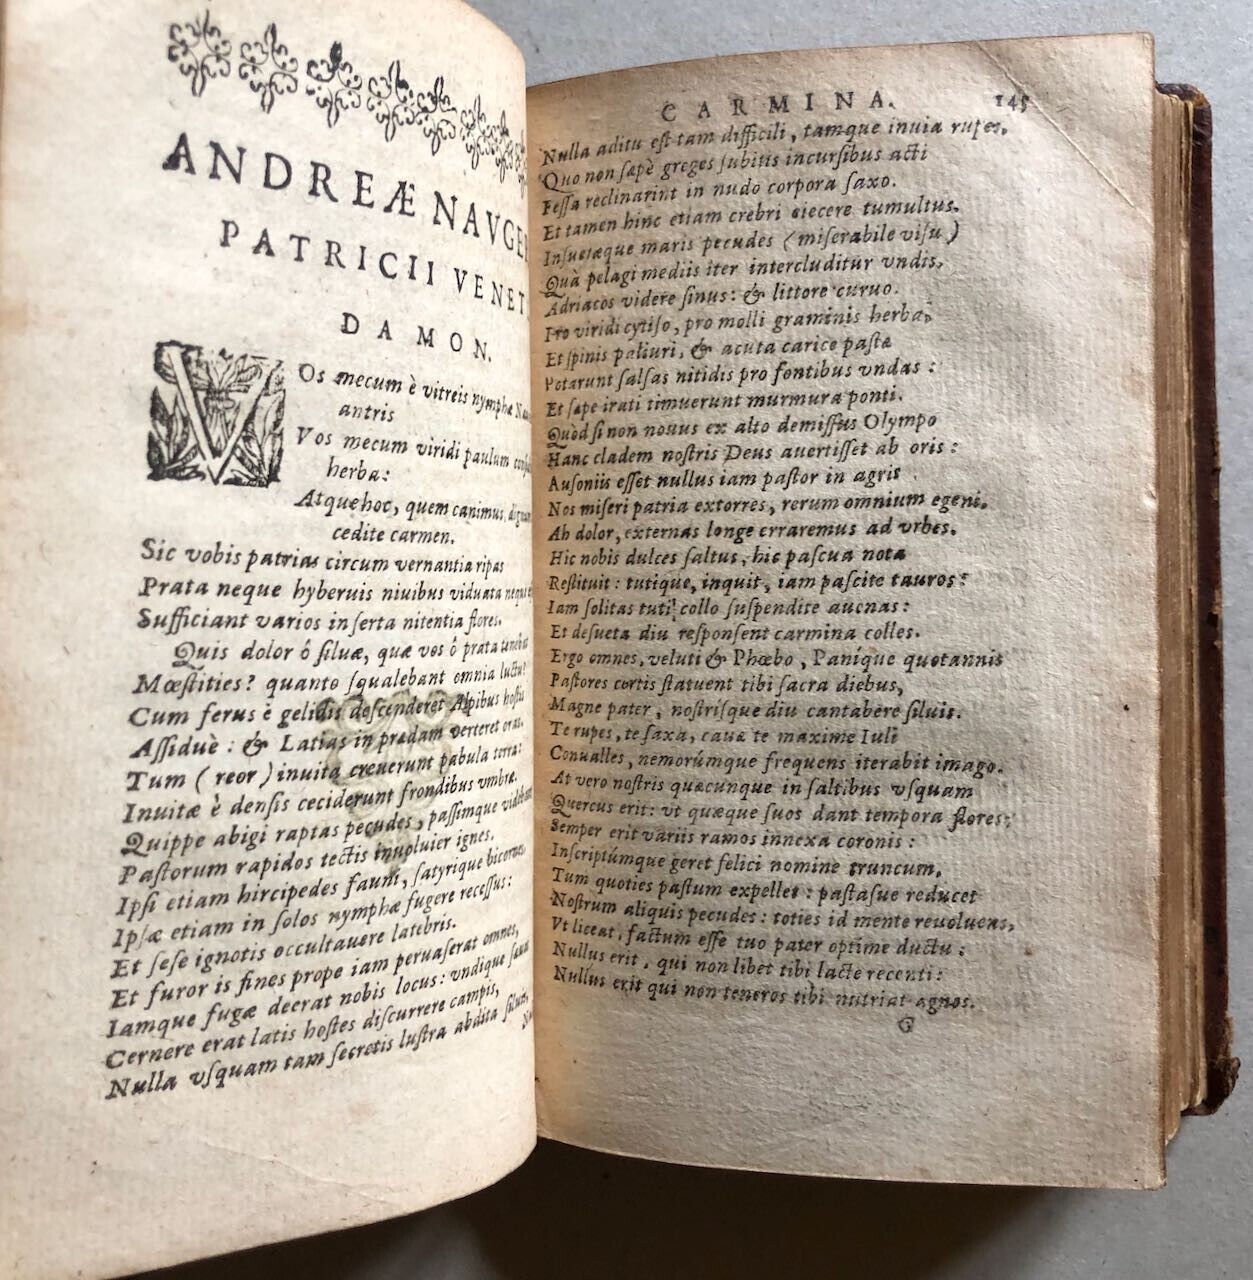 ANDREÆ NAVGE
PATRICII VENET
DAMON.
VOs mecum è vitreis nymphæ
antris
Vos mecum viridi paulum
herba:
Atque hoc, quem canimus,
cedite carmen.
Sic vobis patrias circum vernantia ripas
Prata neque hyberuis niuibus viduata
Sufficiant varios inſerta nitentia flores.
Quis dolor ô ſiluæ, quæ vos ô prata
Mœſtities? quanto ſqualebant omnia luctu?
Cum ferus è gelidis deſcenderet Alpibus hoſtis
Aſſiduè: & Latias in prædam verteret oras.
Tum (reor) inuita creuerunt pabula terra:
Inuitæ è denſis ceciderunt frondibus vmbræ.
Quippe abigi raptas pecudes, paſſimque
Paſtorum rapidos tectis inupluier ignes.
Ipſi etiam hircipedes fauni, ſatyrique bicornes
Ipſæ etiam in ſolos nymphæ fugere receſſus:
Et ſeſe ignotis occultauere latebris.
Et furor is fines prope iam peruaſerat omnes,
Iamque fugæ decrat nobis locus: vndique
Cernere erat latis hoſtes diſcurrere campis,
Nulla vſquam tam ſecretis luſtra abdita ſiluis,
CARMINA. 145
Nulla aditu eſt tam difficili, tamque inuia rupes,
Quo non ſæpè greges ſubitis incurſibus acti
Feſſa reclinarint in nudo corpora ſaxo.
Et tamen hinc etiam crebri eiecere tumultus.
Inſuetæque maris pecudes (miſerabile viſu)
Quà pelagi mediis iter intercluditur vndis,
Adriacos videre ſinus: & littore curuo.
Pro viridi cytiſo, pro molli graminis herba,
Et ſpinis paliuri, & acuta carice paſtæ
Potarunt ſalſas nitidis pro fontibus vndas:
Et ſæpe irati timuerunt murmura ponti.
Quòd ſi non nouus ex alto demiſſus Olympo
Hanc cladem noſtris Deus auertiſſet ab oris:
Auſoniis eſſet nullus iam paſtor in agris
Nos miſeri patria extorres, rerum omnium egeni,
Ah dolor, externas longe erraremus ad vrbes.
Hic nobis dulces ſaltus, hic paſcua nota
Reſtituit: tutique, inquit, iam paſcite tauros:
Iam ſolitas tuti collo ſuſpendite auenas:
Et deſueta diu reſponſent carmina colles.
Ergo omnes, veluti & Phœbo, Paníque quotannis
Paſtores certis ſtatuent tibi ſacra diebus,
Magne pater, noſtriſque diu cantabere ſiluis.
Te rupes, te ſaxa, cauæ te maxime Iuli
Conualles, nemorúmque frequens iterabit imago.
At vero noſtris quæcunque in ſaltibus vſquam
Quercus erit: vt quæque ſuos dant tempora flores:
Semper erit variis ramos innexa coronis:
Inſcriptúmque geret felici nomine truncum.
Tum quoties paſtum expellet: paſtaſue reducet
Noſtrum aliquis pecudes: toties id mente reuoluens,
Vt liceat, factum eſſe tuo pater optime ductu:
Nullus erit, qui non libet tibi lacte recenti:
Nullus erit qui non teneros tibi nutriat agnos.
G